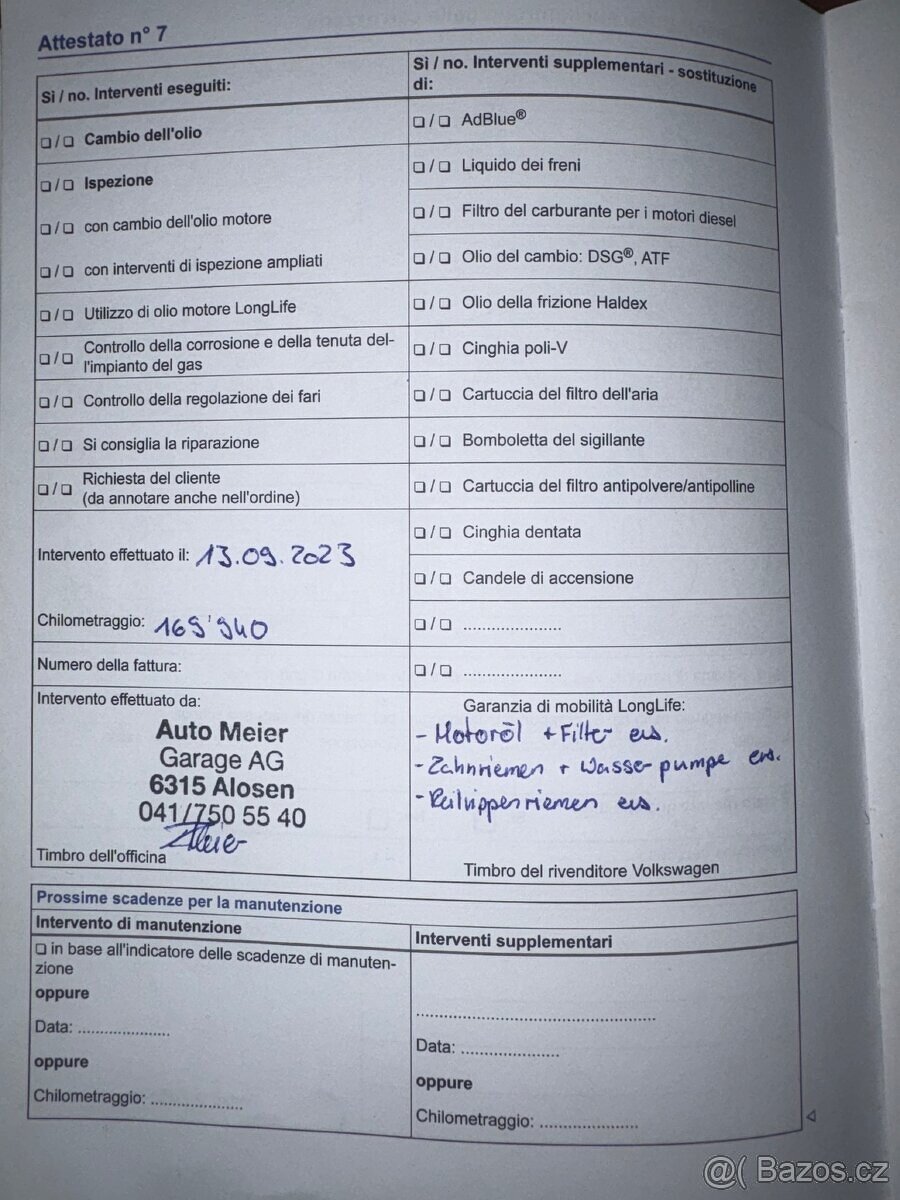 Attestato n° 7
Sì / no. Interventi eseguiti:
❏ / ❏ Cambio dell'olio
❏ / ❏ Ispezione
❏ / ❏ con cambio dell'olio motore
❏ / ❏ con interventi di ispezione ampliati
❏ / ❏ Utilizzo di olio motore LongLife
❏ / ❏ Controllo della corrosione e della tenuta del-
l'impianto del gas
❏ / ❏ Controllo della regolazione dei fari
❏ / ❏ Si consiglia la riparazione
❏ / ❏ Richiesta del cliente
(da annotare anche nell'ordine)
Intervento effettuato il: 13.09.2023
Chilometraggio: 169'940
Numero della fattura:
Intervento effettuato da:
Auto Meier
Garage AG
6315 Alosen
041/750 55 40
Timbro dell'officina
Sì / no. Interventi supplementari - sostituzione
di:
❏ / ❏ AdBlue®
❏ / ❏ Liquido dei freni
❏ / ❏ Filtro del carburante per i motori diesel
❏ / ❏ Olio del cambio: DSG®, ATF
❏ / ❏ Olio della frizione Haldex
❏ / ❏ Cinghia poli-V
❏ / ❏ Cartuccia del filtro dell'aria
❏ / ❏ Bomboletta del sigillante
❏ / ❏ Cartuccia del filtro antipolvere/antipolline
❏ / ❏ Cinghia dentata
❏ / ❏ Candele di accensione
❏ / ❏ .....................
❏ / ❏ .....................
Garanzia di mobilità LongLife:
- Motoröl + Filter ers.
- Zahnriemen + Wasserpumpe ers.
- Keilrippenriemen ers.
Timbro del rivenditore Volkswagen
Prossime scadenze per la manutenzione
Intervento di manutenzione
❏ in base all'indicatore delle scadenze di manuten-
zione
oppure
Data: ....................
oppure
Chilometraggio: ....................
Interventi supplementari
..................................................
Data: ....................
oppure
Chilometraggio: ....................
@( Bazos.cz